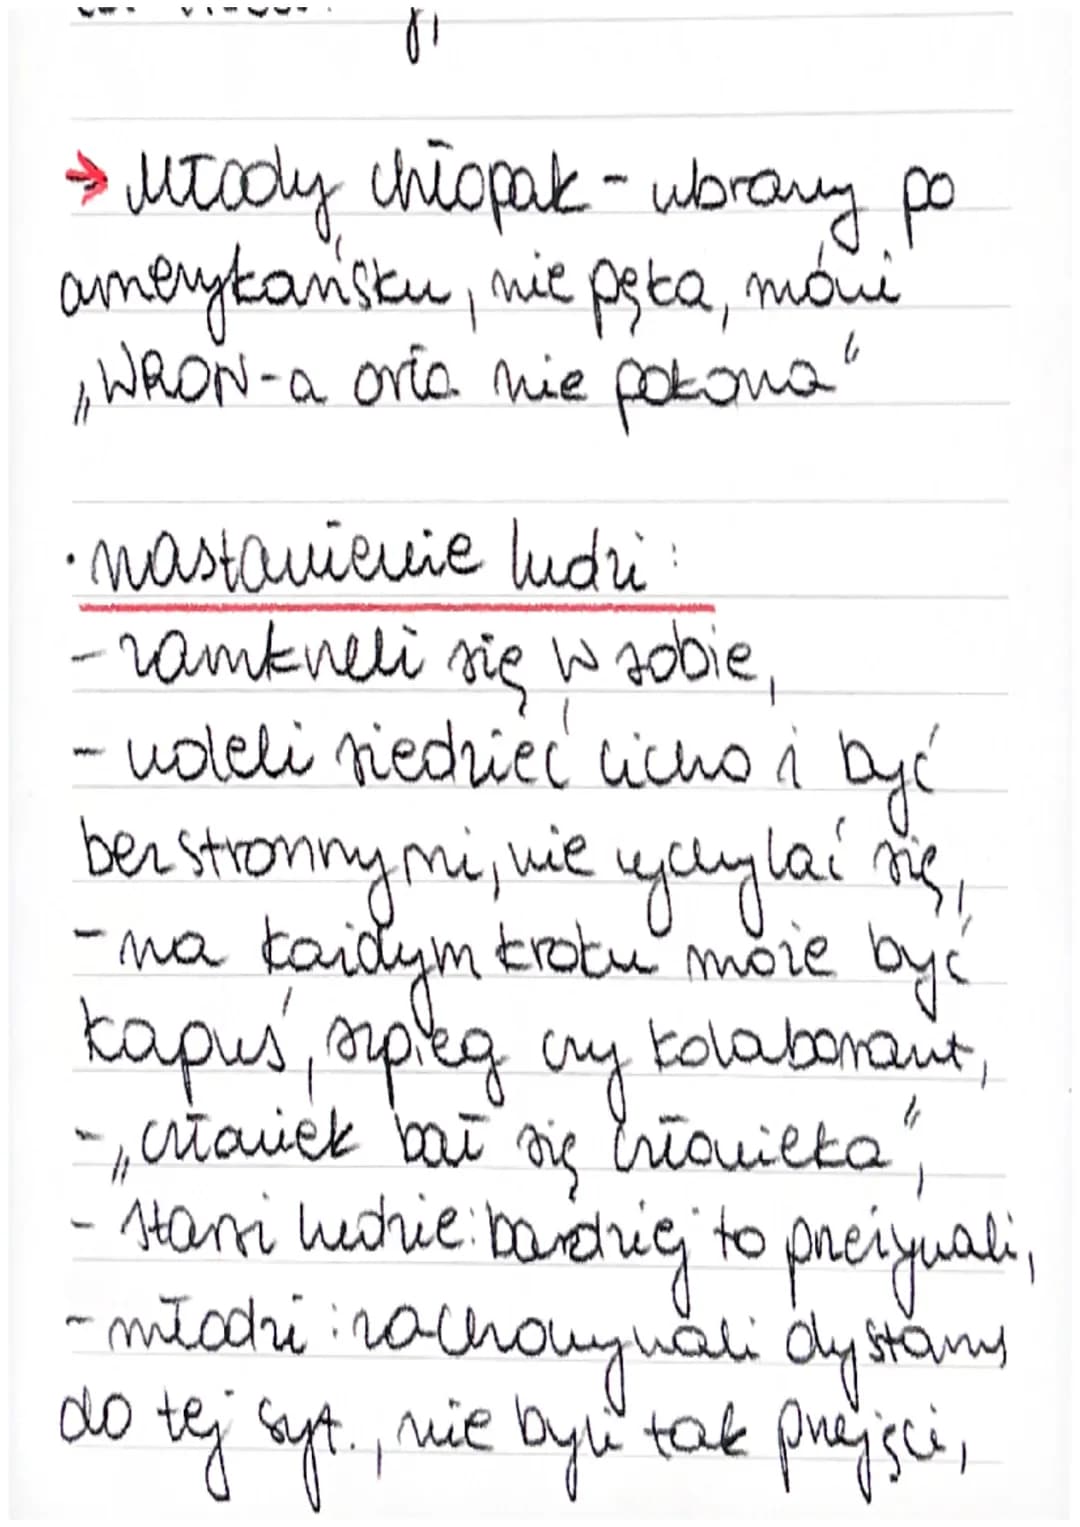 → Młody chłopak - ubrany po
amerykańsku, nie pęka, mówi
„WRON-a orła nie pokona"
• nastawienie ludzi:
- zamkneli się w sobie,
- woleli siedzieć cicho i być
bezstronnymi, nie wychylać się,
- na każdym kroku może być
kapuś, szpieg czy kolaborant,
- „człowiek bał się człowieka",
- starsi ludzie: bardziej to przeżywali,
- młodzi: zachowywali dystans
do tej syt., nie byli tak przejęci,